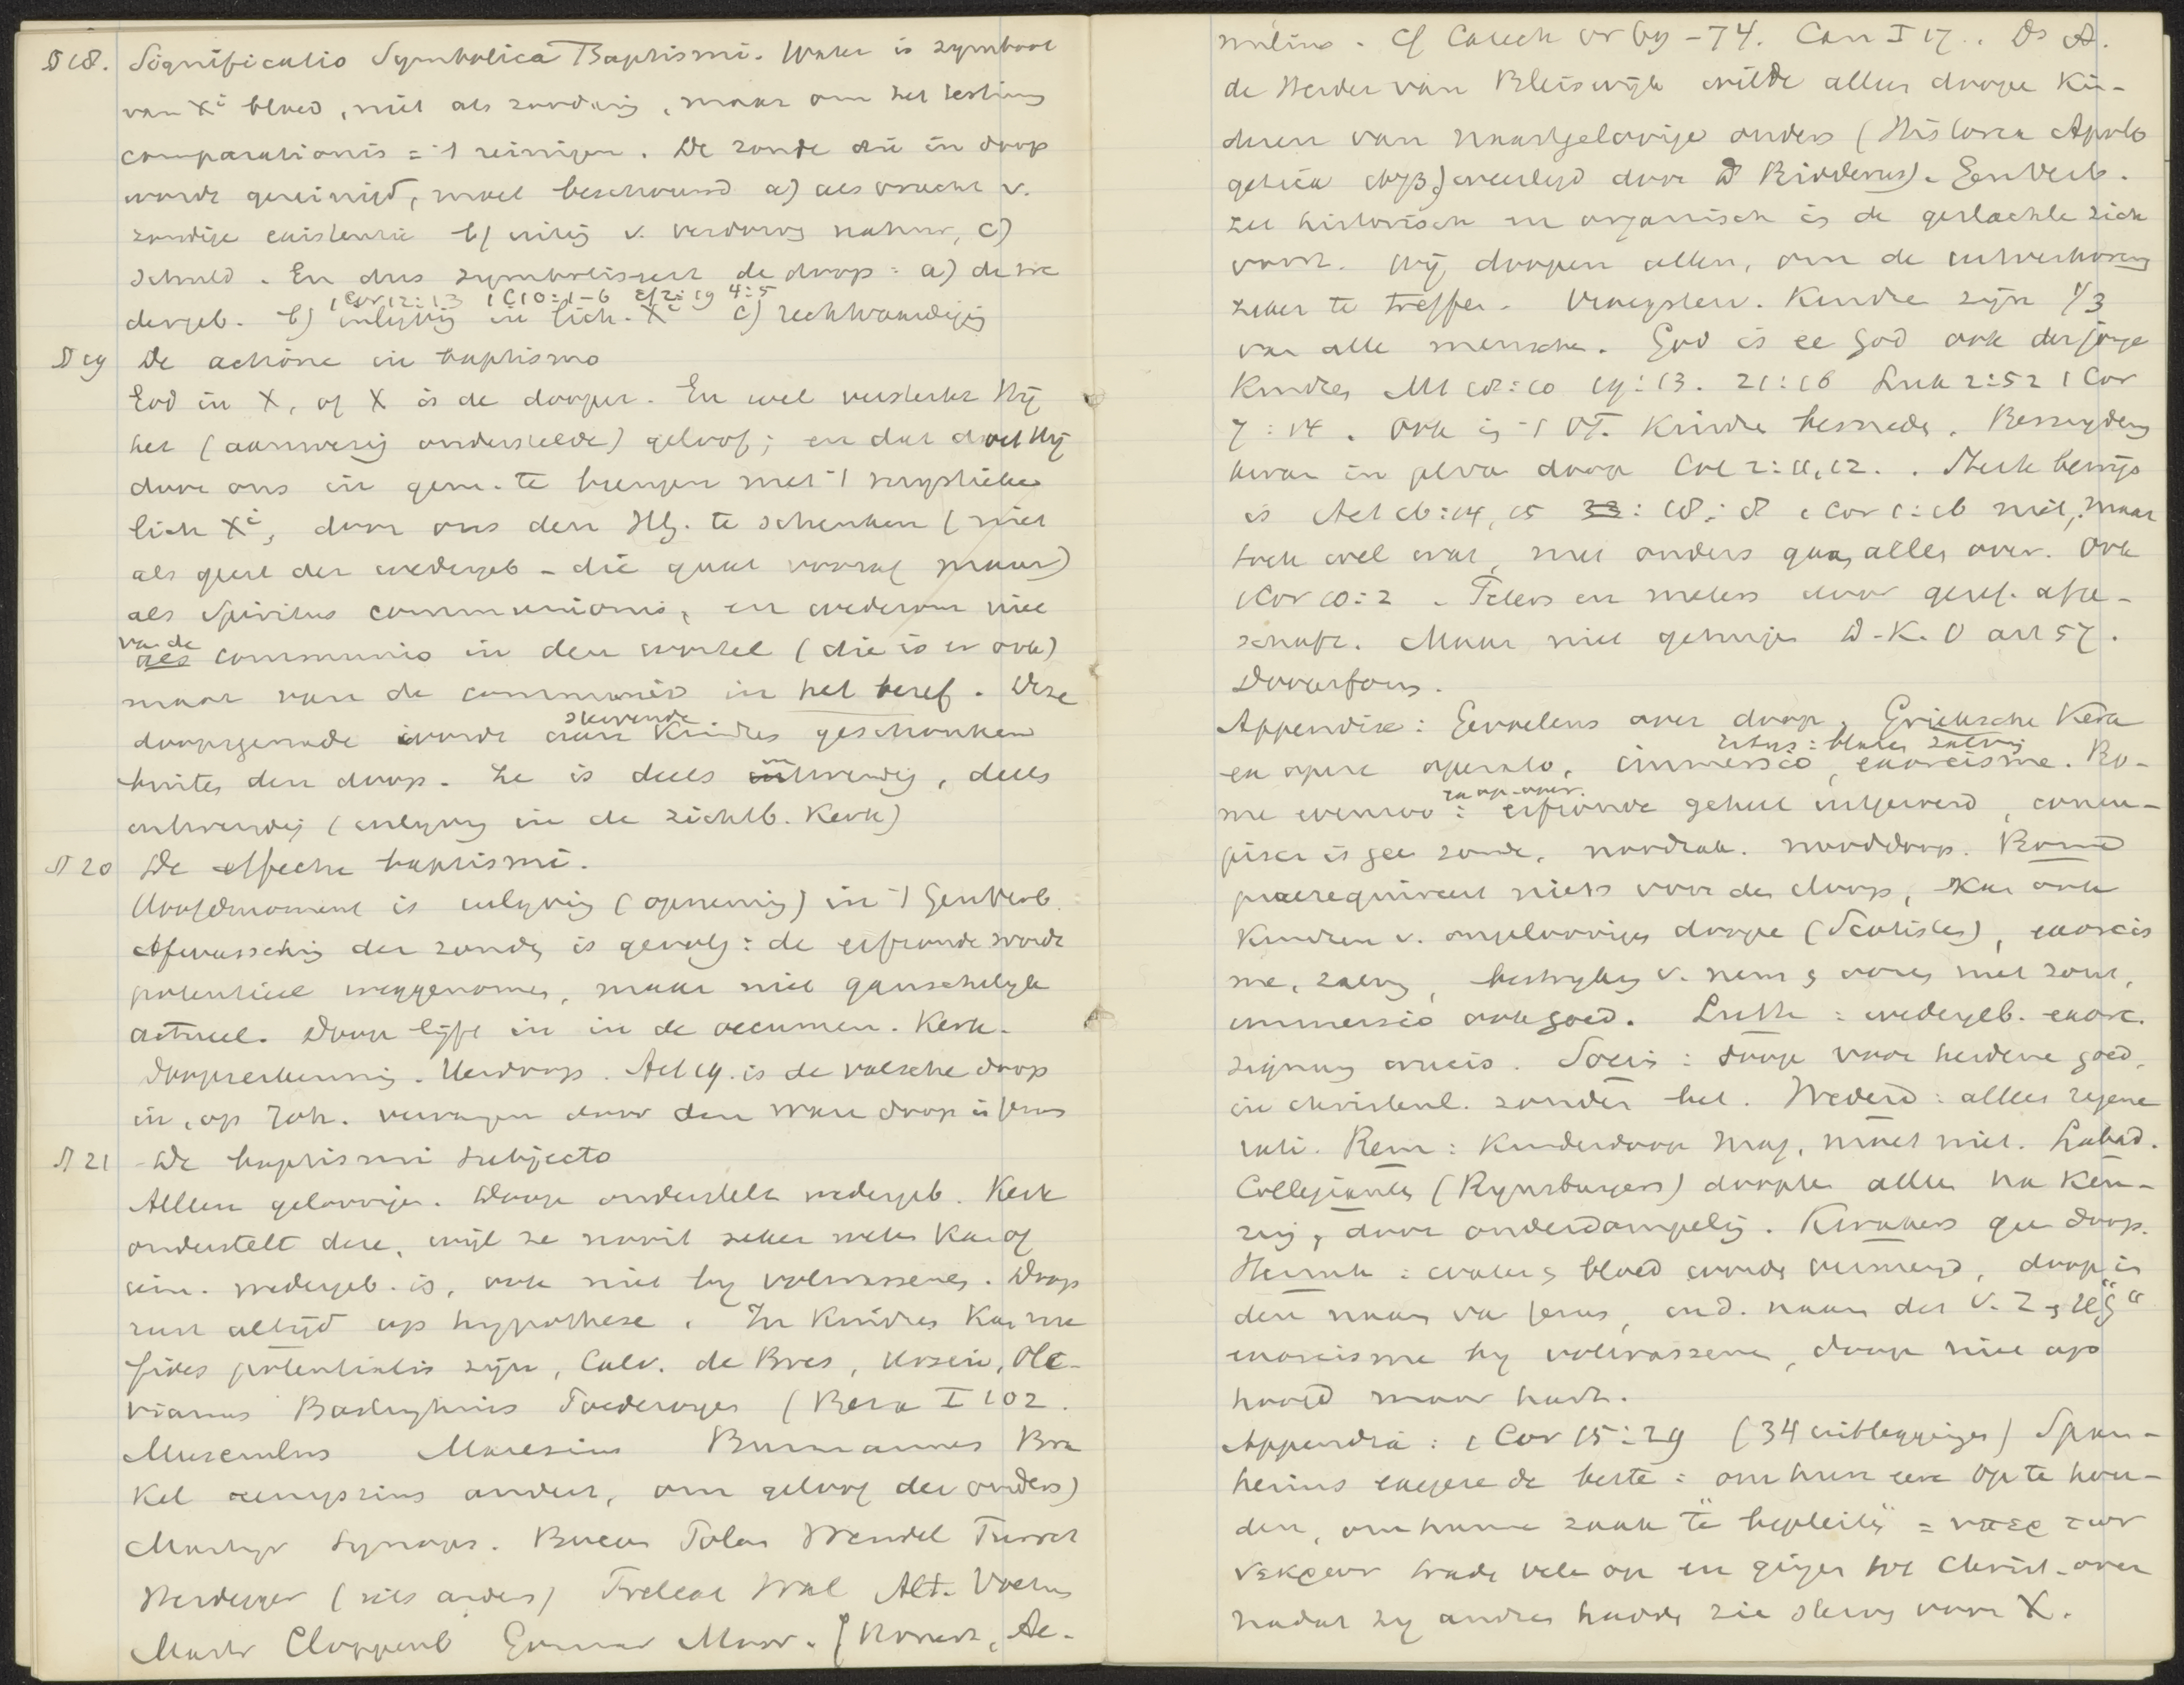 § 18. Significatio Symbolica Baptismi. Water is symbool
van Xi bloed, niet als zoodanig, maar om het tertium
comparationis = 't reinigen. De zonde die in doop
wordt gereinigd, moet beschouwd a) als vrucht v.
zondige existentie b) uiting v. verdorven natuur, c)
schuld. En dus symboliseert de doop: a) de we
1 Cor 12:13 1 C 10:1-6 Ef 2:19 4:5
dergeb. b) inlijving in lich. Xi c) rechtvaardiging
§ 19 De actione in baptismo
God in X, of X is de dooper. En wel versterkt Hij
het (aanwezig onderstelde) geloof; en dat doet Hij
door ons in gem. te brengen met 't mystieke
lich Xi, door ons den HG. te schenken (niet
als geest der wedergeb - die gaat vooraf maar)
als Spiritus communionis, en wederom niet
van de
als communio in den wortel (die is er ook)
maar van de communio in het besef. Deze
stervende
doopsgenade wordt aan Kindres geschonken
buiten den doop. Ze is deels inwendig, deels
uitwendig (inlijving in de zichtb. Kerk)
§ 20 De effectu baptismi.
Hoofdmoment is inlijving (opneming) in 't GenVerb.
Afwassching der zonde is gevolg: de erfzonde wordt
potentieel weggenomen, maar niet ganschelijk
actueel. Doop lijft in in de oecumen. Kerk.
Dooperkenning. Herdoop. Act 19. is de valsche doop
in, op Joh. vervangen door den waren doop in Jezus
§ 21 De baptismi subjecto
Alleen geloovigen. Doop onderstelt wedergeb. Kerk
onderstelt deze, wijl ze nooit zeker weten kan of
iem. wedergeb. is, ook niet bij volwassenen. Doop
rust altijd op hypothese. In Kindres kan me
fides potentialis zijn, Calv. de Bres, Ursin, Ole-
vianus Bastingius Toederoyer (Beza I 102.
Musculus Maresius Burmannus Bra
kel eenigszins anders, om geloof der ouders)
Martyr Synops. Bucan Polan Wendel Turret
Heidegger (iets anders) Trelcat Wal Alt. Voetius
Mastr Cloppenb Gomar Moor. [Kovach, Ae-
milius. Cf Catech vr 69-74. Can I 17. Ds A.
de Herder van Bleiswijk wilde alleen doopen Kin-
deren van waarlijk geloovige ouders (Historica Apolo
getica 1693) weerlegd door D Ridderus). GenVerb.
zet historisch en organisch in de geslachte zich
voort. Wij doopen allen, om de uitverkoren
zeker te treffen. Vraagsteen. Kindre zijn 1/3
van alle menschen. God is ee God ook der jonge
Kindres Mt 18:10 19:13. 21:16 Luk 2:52 1 Cor
7:14. Ook in 't OT. Kindre besneden. Besnijdenis
kwam in plts van doop Col 2:11,12. Sterk bewijs
is Act 16:14,15 33: 18:8 1 Cor 1:16 niet, maar
toch wel wat, met ouders gaan alles over. Ook
1 Cor 10:2. Peters en meters door geref. afge-
schaft. Maar niet getuigen D-K. O art 57.
Doopsform.
Appendix: Gevoelens over doop. Grieksche Kerk
ritus: blazen zalving
ex opere operato, immersio, exorcisme. Ro-
ex op. oper.
me evenzoo: erfzonde geheel uitgewerd, concu-
piscr is gee zonde. noodzak. nooddoop. Rome
praerequireert niets voor den doop, kan ook
Kindren v. ongelooviges doopen (Scotisten), exorcis
me, zalving, bestrijking v. neus & oore met zout,
immersio ook goed. Luth: wedergeb. exorc.
signum crucis. Socin: doop voor heidene goed,
in christenl. zonder hel. Wederd: alleen regene
rati. Rem: Kinderdoop mag, moet niet. Labad.
Collegianten (Rijnsburgers) doopten allen na Ken-
nis, door onderdompeling. Kwakers gee doop.
Hernh: water & bloed wordt vermengd, doop in
den naam va Jezus, ond. naam des V. Z & HG"
exorcisme bij volwassene, doop niet op
hoofd maar hart.
Appendix: 1 Cor 15:29 (34 uitleggingen) Span-
hemius exegese de beste: om hun eer op te hou-
den, om hunne zaak te bepleiten = υπερ των
νεκρων trade vele op en gingen tot Christ. over
nadat zij andres hadde zie sterven voor X.